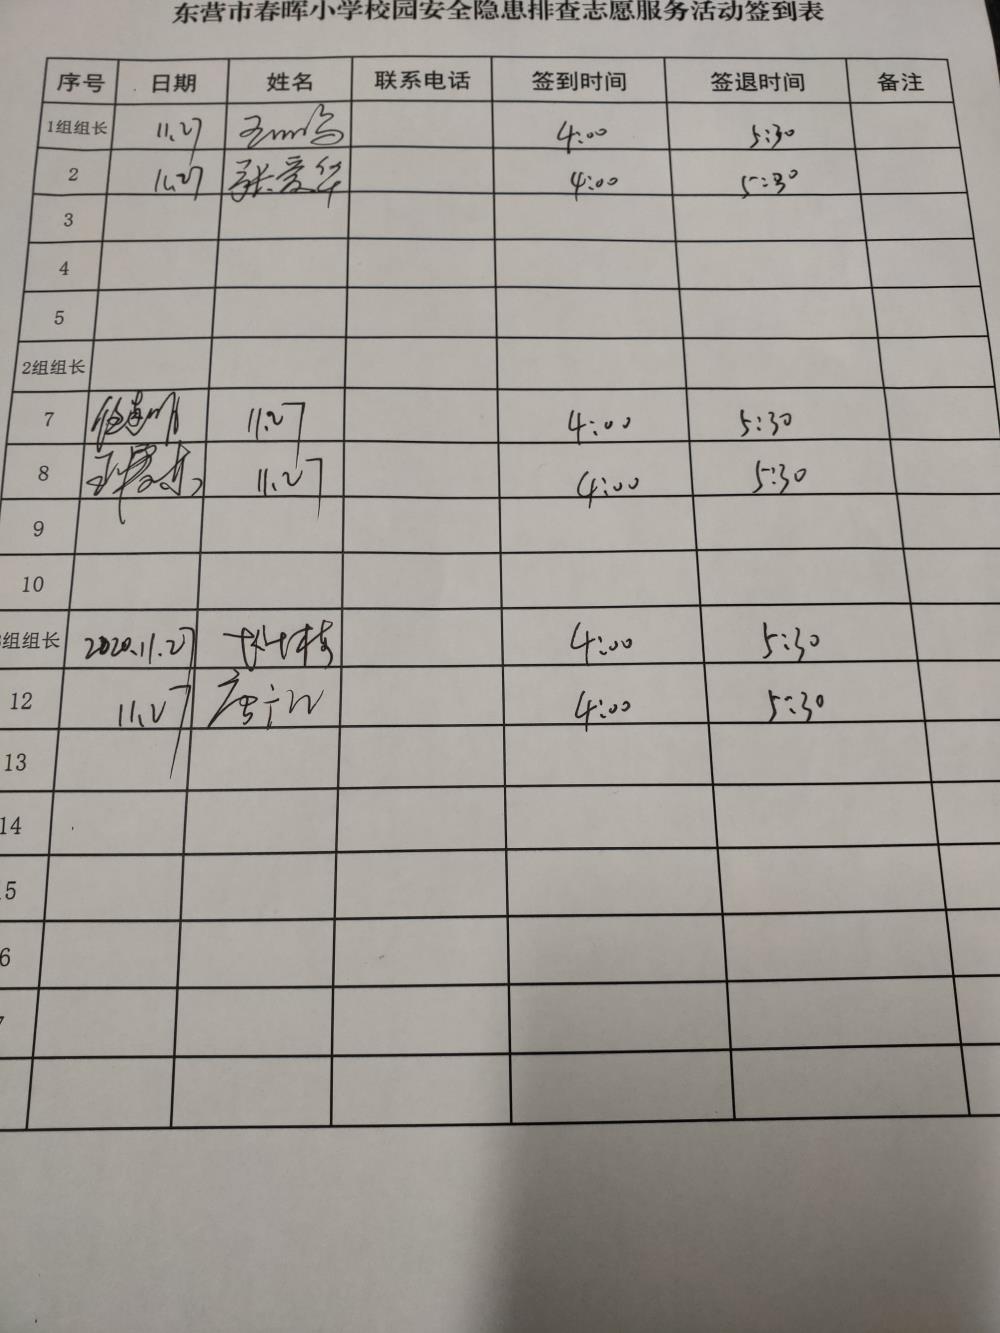 东营市春晖小学校园安全隐患排查志愿服务活动签到表
序号 日期 姓名 联系电话 签到时间 签退时间 备注
1组组长 11.27 4:00 5:30
2 11.27 张爱华 4:00 5:30
3
4
5
2组组长
7 11.27 4:00 5:30
8 11.27 4:00 5:30
9
10
组组长 2020.11.27 4:00 5:30
12 11.27 4:00 5:30
13
14
5
6
7